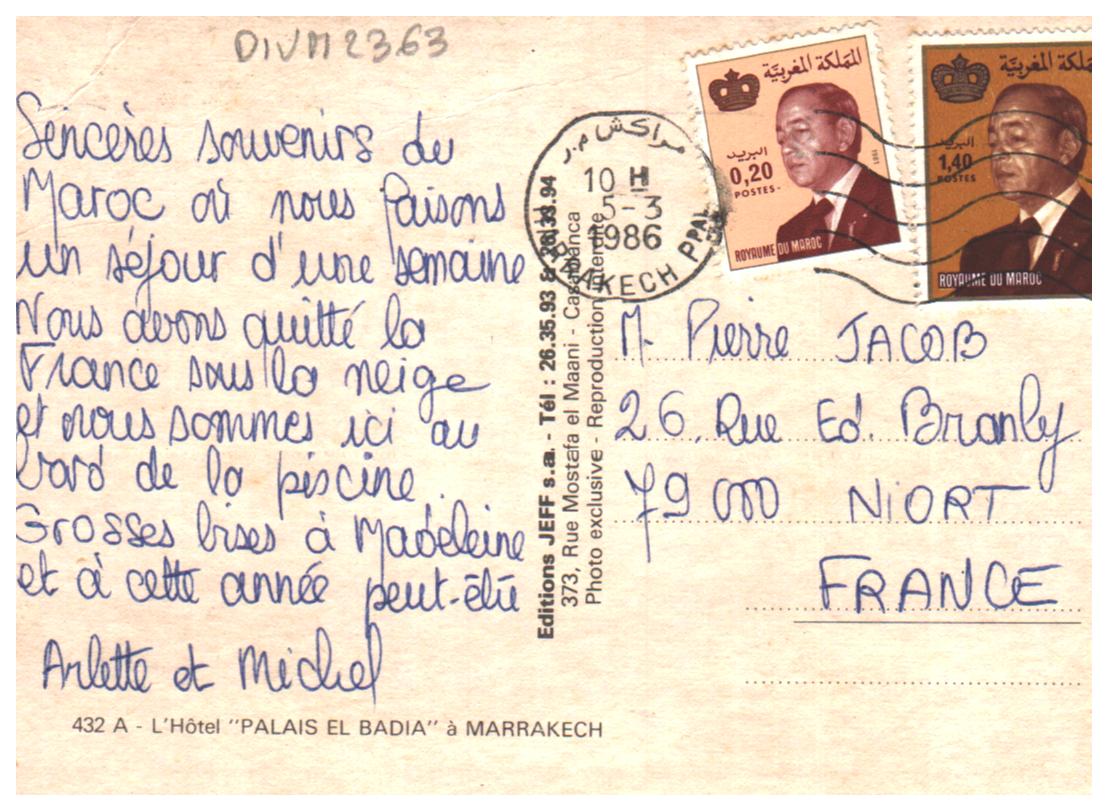 DIVM2363
Sencères souvenirs du
Maroc où nous faisons
un séjour d'une semaine
Nous avons quitté la
France sous la neige
et nous sommes ici au
bord de la piscine.
Grosses bises à Madeleine
et à cette année peut-être
Arlette et Michel
432 A - L'Hôtel "PALAIS EL BADIA" à MARRAKECH
Editions JEFF s.a. - Tél : 26.35.93 & 26.38.94
373, Rue Mostafa el Maani - Casablanca
Photo exclusive - Reproduction interdite
مراكش م.ر
10 H
5-3
1986
MARRAKECH PPAL
المملكة المغربية
البريد
0,20
POSTES
1981
ROYAUME DU MAROC
المملكة المغربية
البريد
1,40
POSTES
ROYAUME DU MAROC
M. Pierre JACOB
26, Rue Ed. Branly
79 000 NIORT
FRANCE